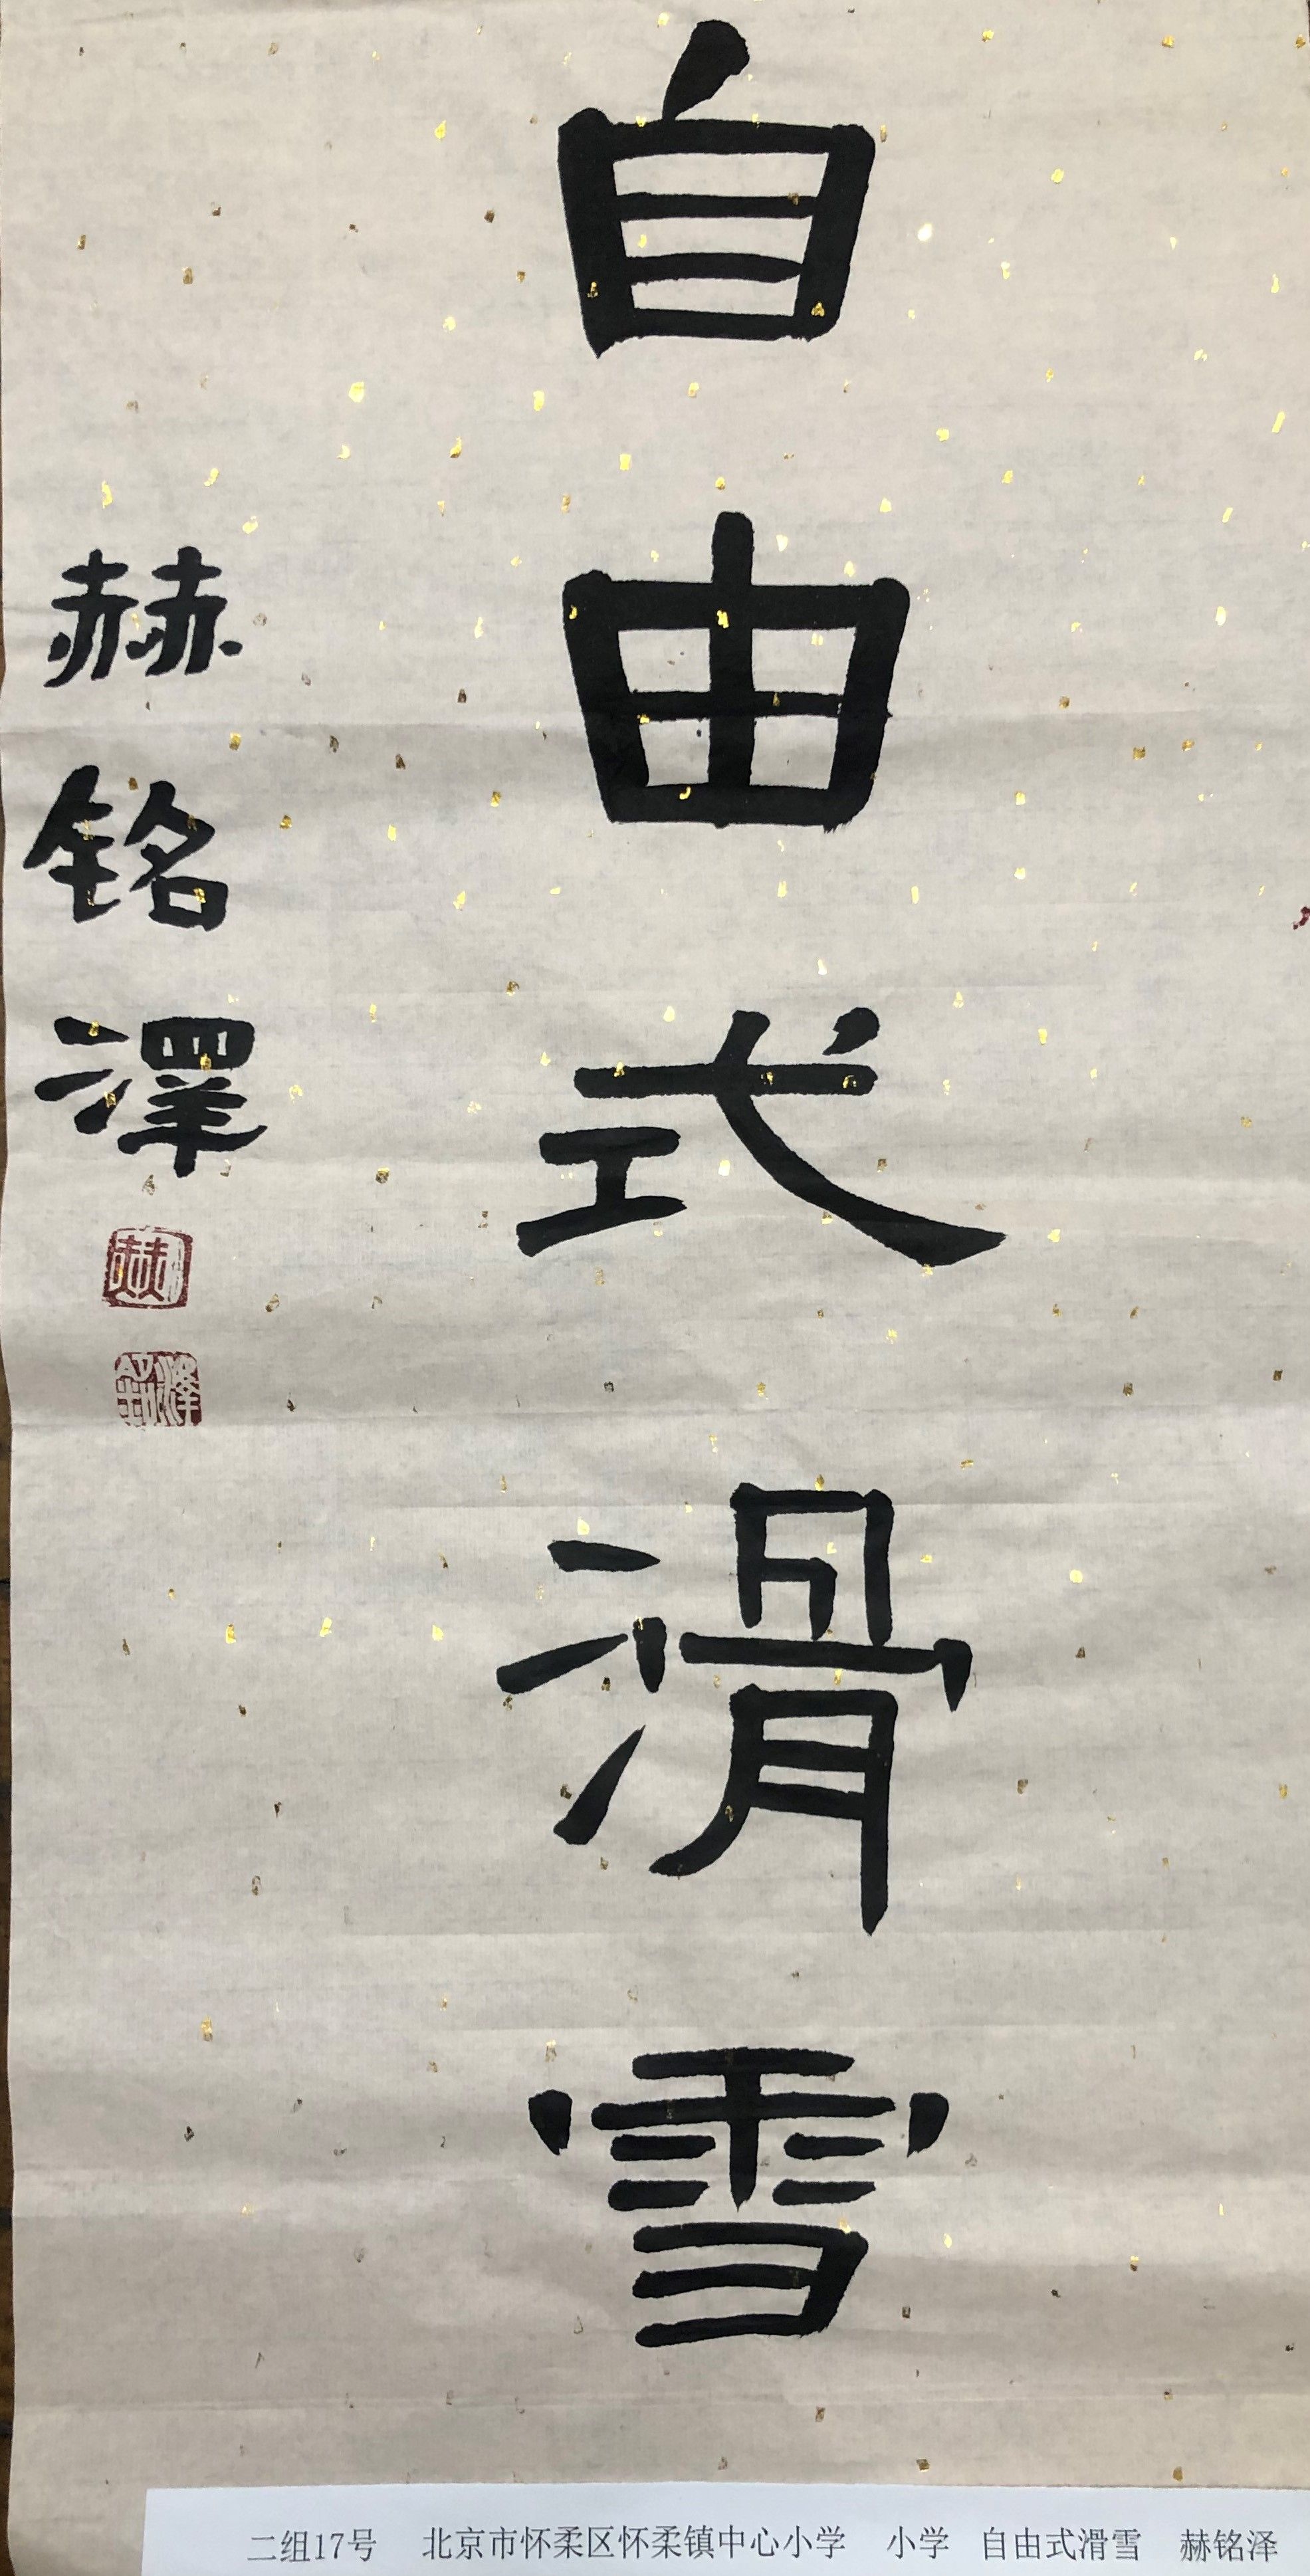 自由式滑雪
赫铭澤
赫
铭澤
二组17号 北京市怀柔区怀柔镇中心小学 小学 自由式滑雪 赫铭泽